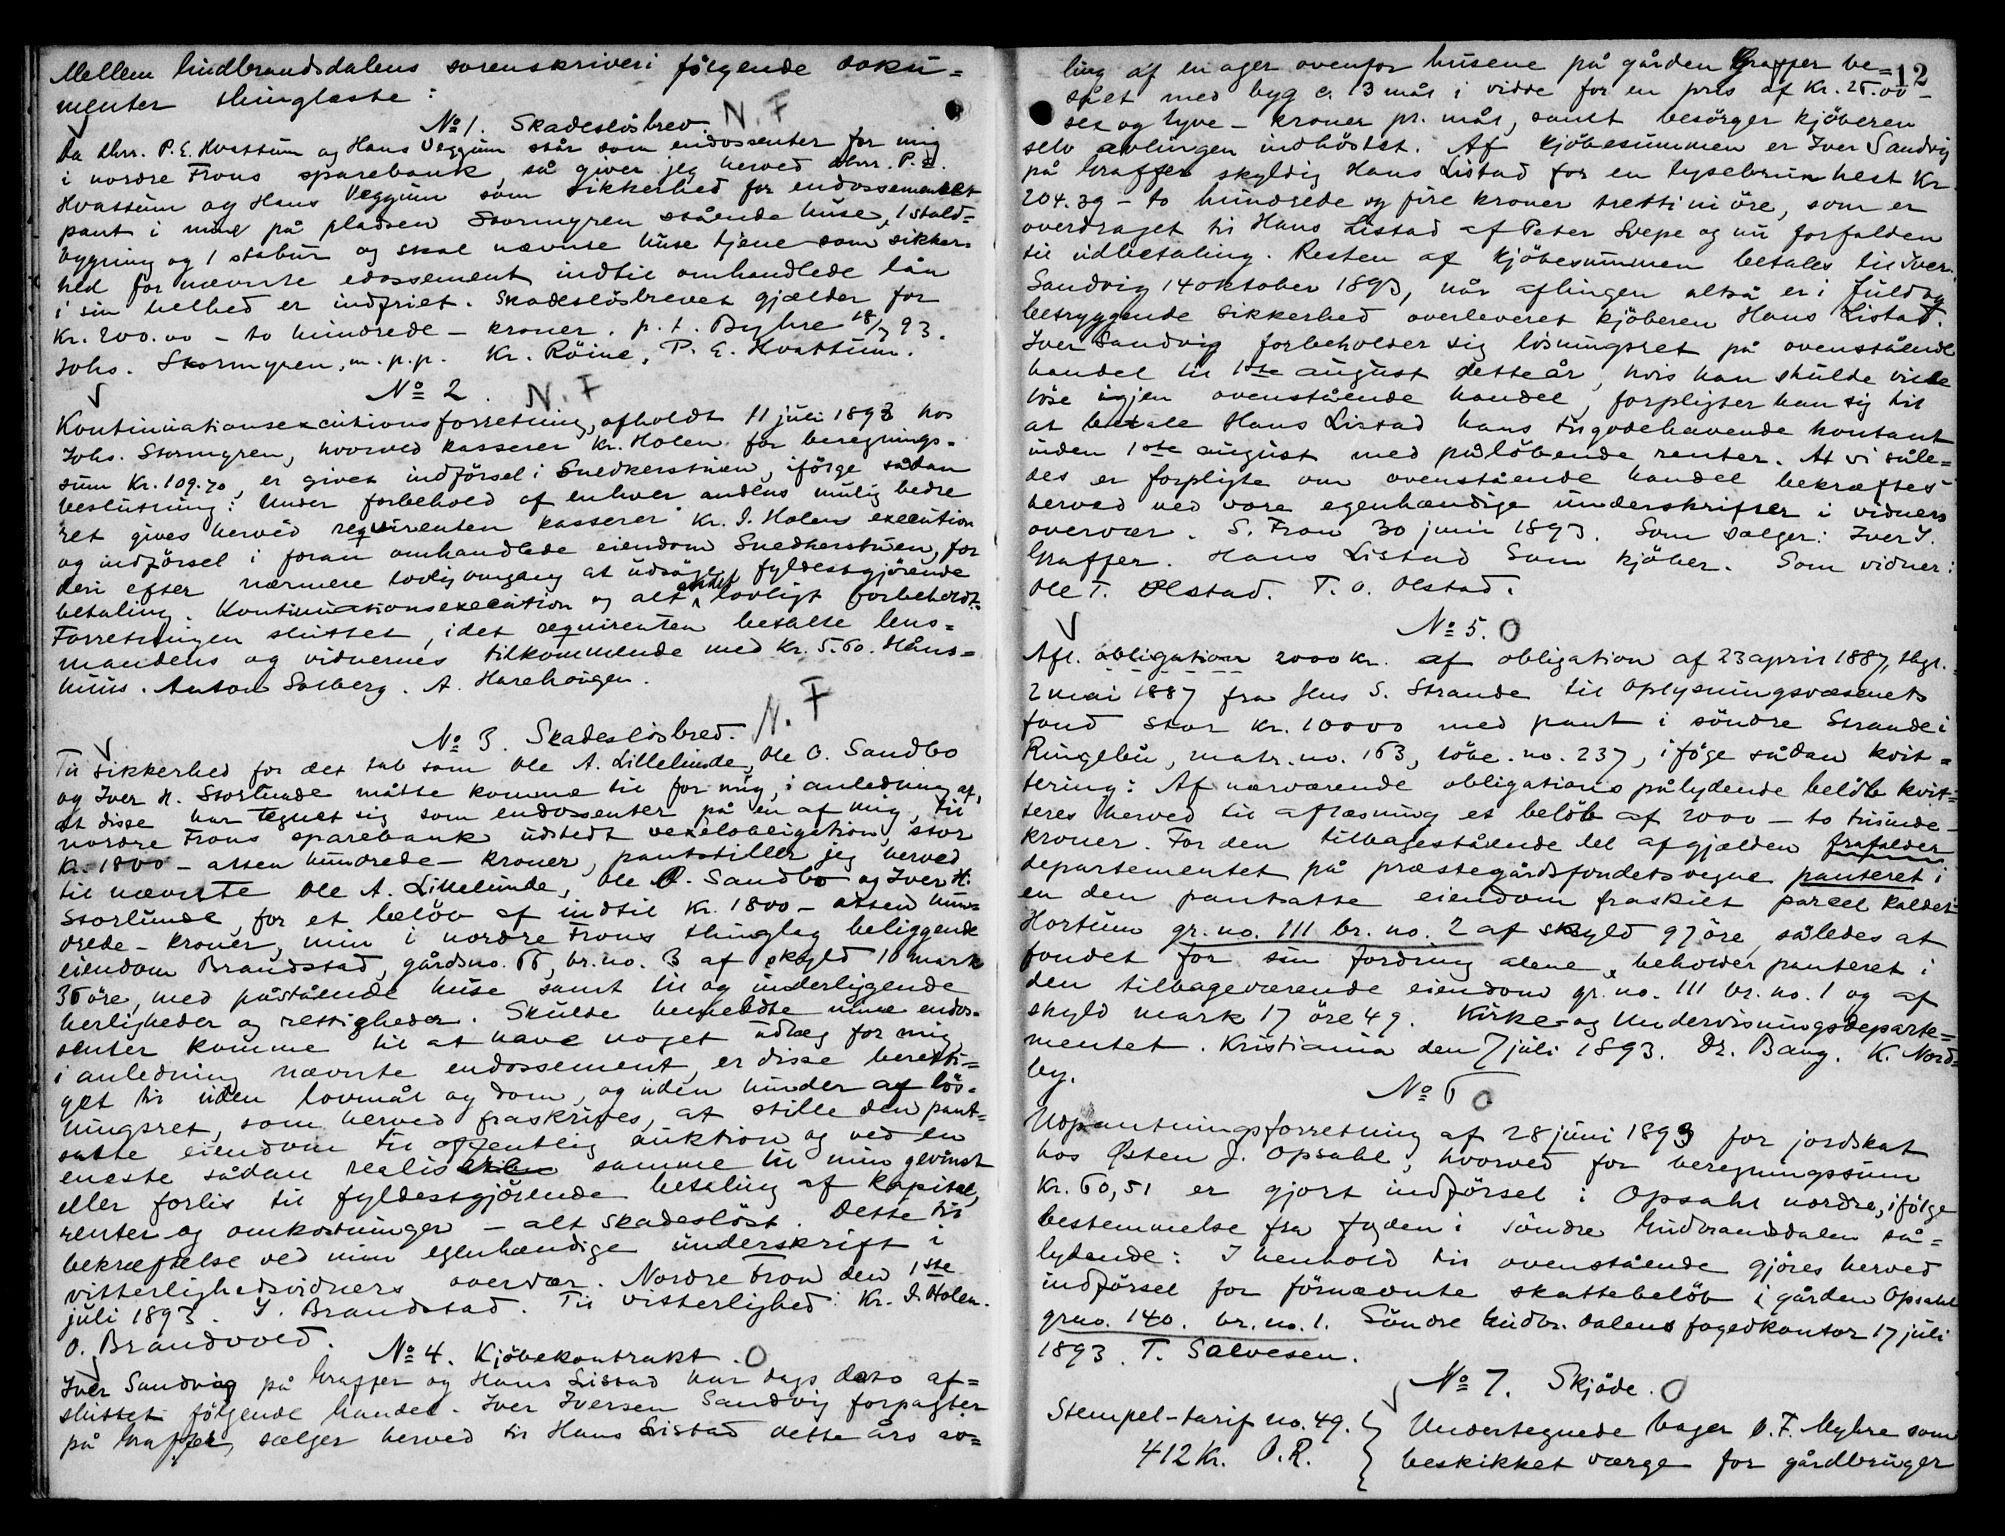 Mellem Gudbrandsdalens sorenskriveri følgende doku=
menter thinglæste:
№ 1. Skadesløsbrev. N.F
Da Hrr. P. E. Kvattum og Hans Veggum står som endossenter for mig
i nordre Frons sparebank, så giver jeg herved Hrr. P. E.
Kvattum og Hans Veggum som sikkerhed for endossementet
pant i mine på pladsen Stormyren stående huse, 1 stald=
bygning og 1 stabur og skal nævnte huse tjene som sikker-
hed for nævnte edossement indtil omhandlede lån
i sin helhed er indfriet. Skadesløsbrevet gjælder for
Kr. 200.00 – to hundrede – kroner. p. t. Byhre 18/7 93.
Johs. Stormyren, m. p. p. Kr. Röine, P. E. Kvattum.
№ 2. N.F
Kontinuationsexcutionsforretning, afholdt 11 juli 1893 hos
Johs. Stormyren, hvorved kasserer Kr. Holen for beregnings-
sum Kr. 109.70, er givet indførsel i Snedkerstuen, ifølge sådan
beslutning: Under forbehold af enhver andens mulig bedre
ret gives herved reqvirenten kasserer Kr. I. Holens execution
og indførsel i foran omhandlede eiendom Snedkerstuen, for
deri efter nærmere lovlig omgang at udsøge fyldestgjørende
betaling. Kontinuationsexecution og alt andet lovligt forbeholdt.
Forretningen sluttet, idet reqvirenten betalte lens=
mandens og vidnernes tilkommende med Kr. 5.60. Håns=
huus. Anton Solberg. A. Harehaugen.
№ 3. Skadesløsbrev. N.F
Til sikkerhed for det tab som Ole A. Lillelunde, Ole O. Sandbo
og Iver H. Storlunde måtte komme til for mig, i anledning af,
at disse har tegnet sig som endossenter på en af mig, til
nordre Frons sparebank udstedt vexelobligation, stor
Kr. 1800 – atten hundrede – kroner, pantstiller jeg herved
til nævnte Ole A. Lillelunde, Ole O. Sandbo og Iver H.
Storlunde, for et beløb af indtil Kr. 1800 – atten hun=
drede – kroner, min i nordre Frons thinglag beliggende
eiendom Brandstad, gårdsno. 66, br. no. 3 af skyld 10 mark
36 øre, med påstående huse samt til og underliggende
herligheder og rettigheder. Skulde bemeldte mine endos-
senter komme til at have noget udlæg for mig,
i anledning nævnte endossement, er disse beretti=
get til uden lovmål og dom, og uden hinder af løs-
ningsret, som herved fraskrives, at stille den pant=
satte eiendom til offentlig auktion og ved en
eneste sådan realisere samme til min gevinst
eller forlis til fyldestgjørende betaling af kapital,
renter og omkostninger – alt skadesløst. Dette til
bekræftelse ved min egenhændige underskrift i
vitterlighedsvidners overvær. Nordre Fron den 1ste
juli 1893. I. Brandstad. Til vitterlighed: Kr. I. Holen.
O. Brandvold.
№ 4. Kjøbekontrakt. O
Iver Sandvig på Graffer og Hans Listad har dags dato af=
sluttet følgende handel. Iver Iversen Sandvig forpagter
på Graffer, sælger herved til Hans Listad dette års av=
12
ling af en ager ovenfor husene på gården Graffer be=
sået med byg c. 13 mål i vidde for en pris af Kr. 26.00 –
sex og tyve – kroner pr. mål, samt besørger kjøberen
selv avlingen indhøstet. Af kjøbesummen er Iver Sandvig
på Graffer skyldig Hans Listad for en lysebrun hest Kr.
204.39 – to hundrede og fire kroner trettini øre, som er
overdraget til Hans Listad af Peter Svepe og nu forfalden
til udbetaling. Resten af kjøbesummen betales til Iver
Sandvig 14 oktober 1893, når aflingen altså er i fuld og
betryggende sikkerhed overleveret kjøberen Hans Listad.
Iver Sandvig forbeholder sig løsningsret på ovenstående
handel til 1ste august dette år, hvis han skulde ville
løse igjen ovenstående handel, forpligter han sig til
at betale Hans Listad hans tilgodehavende kontant
inden 1ste august med påløbende renter. At vi såle=
des er forpligte om ovenstående handel bekræftes
herved ved vore egenhændige underskrifter i vidners
overvær. S. Fron 30 juni 1893. Som sælger: Iver I.
Graffer. Hans Listad Som kjøber. Som vidner:
Ole T. Olstad. T. O. Olstad.
№ 5. O
Afl. obligation 2000 kr. af obligation af 23 april 1887, thgl.
2 mai 1887 fra Jens S. Strande til Oplysningsvæsenets
fond stor Kr. 10000 med pant i søndre Strande i
Ringebu, matr. no. 163, løbe. no. 237, iføge sådan kvit=
tering: Af nærværende obligations pålydende beløb kvit=
teres herved til aflæsning et beløb af 2000 – to tusinde –
kroner. For den tilbagestående del af gjælden frafalder
departementet på præstegårdsfondets vegne panteret i
en den pantsatte eiendom fraskilt parcel kaldet
Hortum gr. no. 111 br. no. 2 af skyld 97 øre, således at
fondet for sin fordring alene, beholder panteret i
den tilbageværende eiendom gr. no. 111 br. no. 1 og af
skyld mark 17 øre 49. Kirke- og Undervisningsdeparte=
mentet. Kristiania den 7 juli 1893. Dr. Bang. K. Nord=
by.
№ 6 O
Udpantningsforretning af 28 juni 1893 for jordskat
hos Østen J. Opsahl, hvorved for beregningssum
Kr. 60,51 er gjort indførsel i Opsahl nordre, ifølge
bestemmelse fra fogden i søndre Gudbrandsdalen så=
lydende: I henhold til ovenstående gjøres herved
indførsel for førnævnte skattebeløb i gården Opsahl
grno. 140. br. no. 1. Søndre Gudbr. dalens fogedkontor 17 juli
1893. T. Salvesen.
№ 7. Skjøde. O
Stempel-tarif no. 49.
412 Kr. O. R.
Undertegnede bager O. F. Myhre som
beskikket værge for gårdbruger